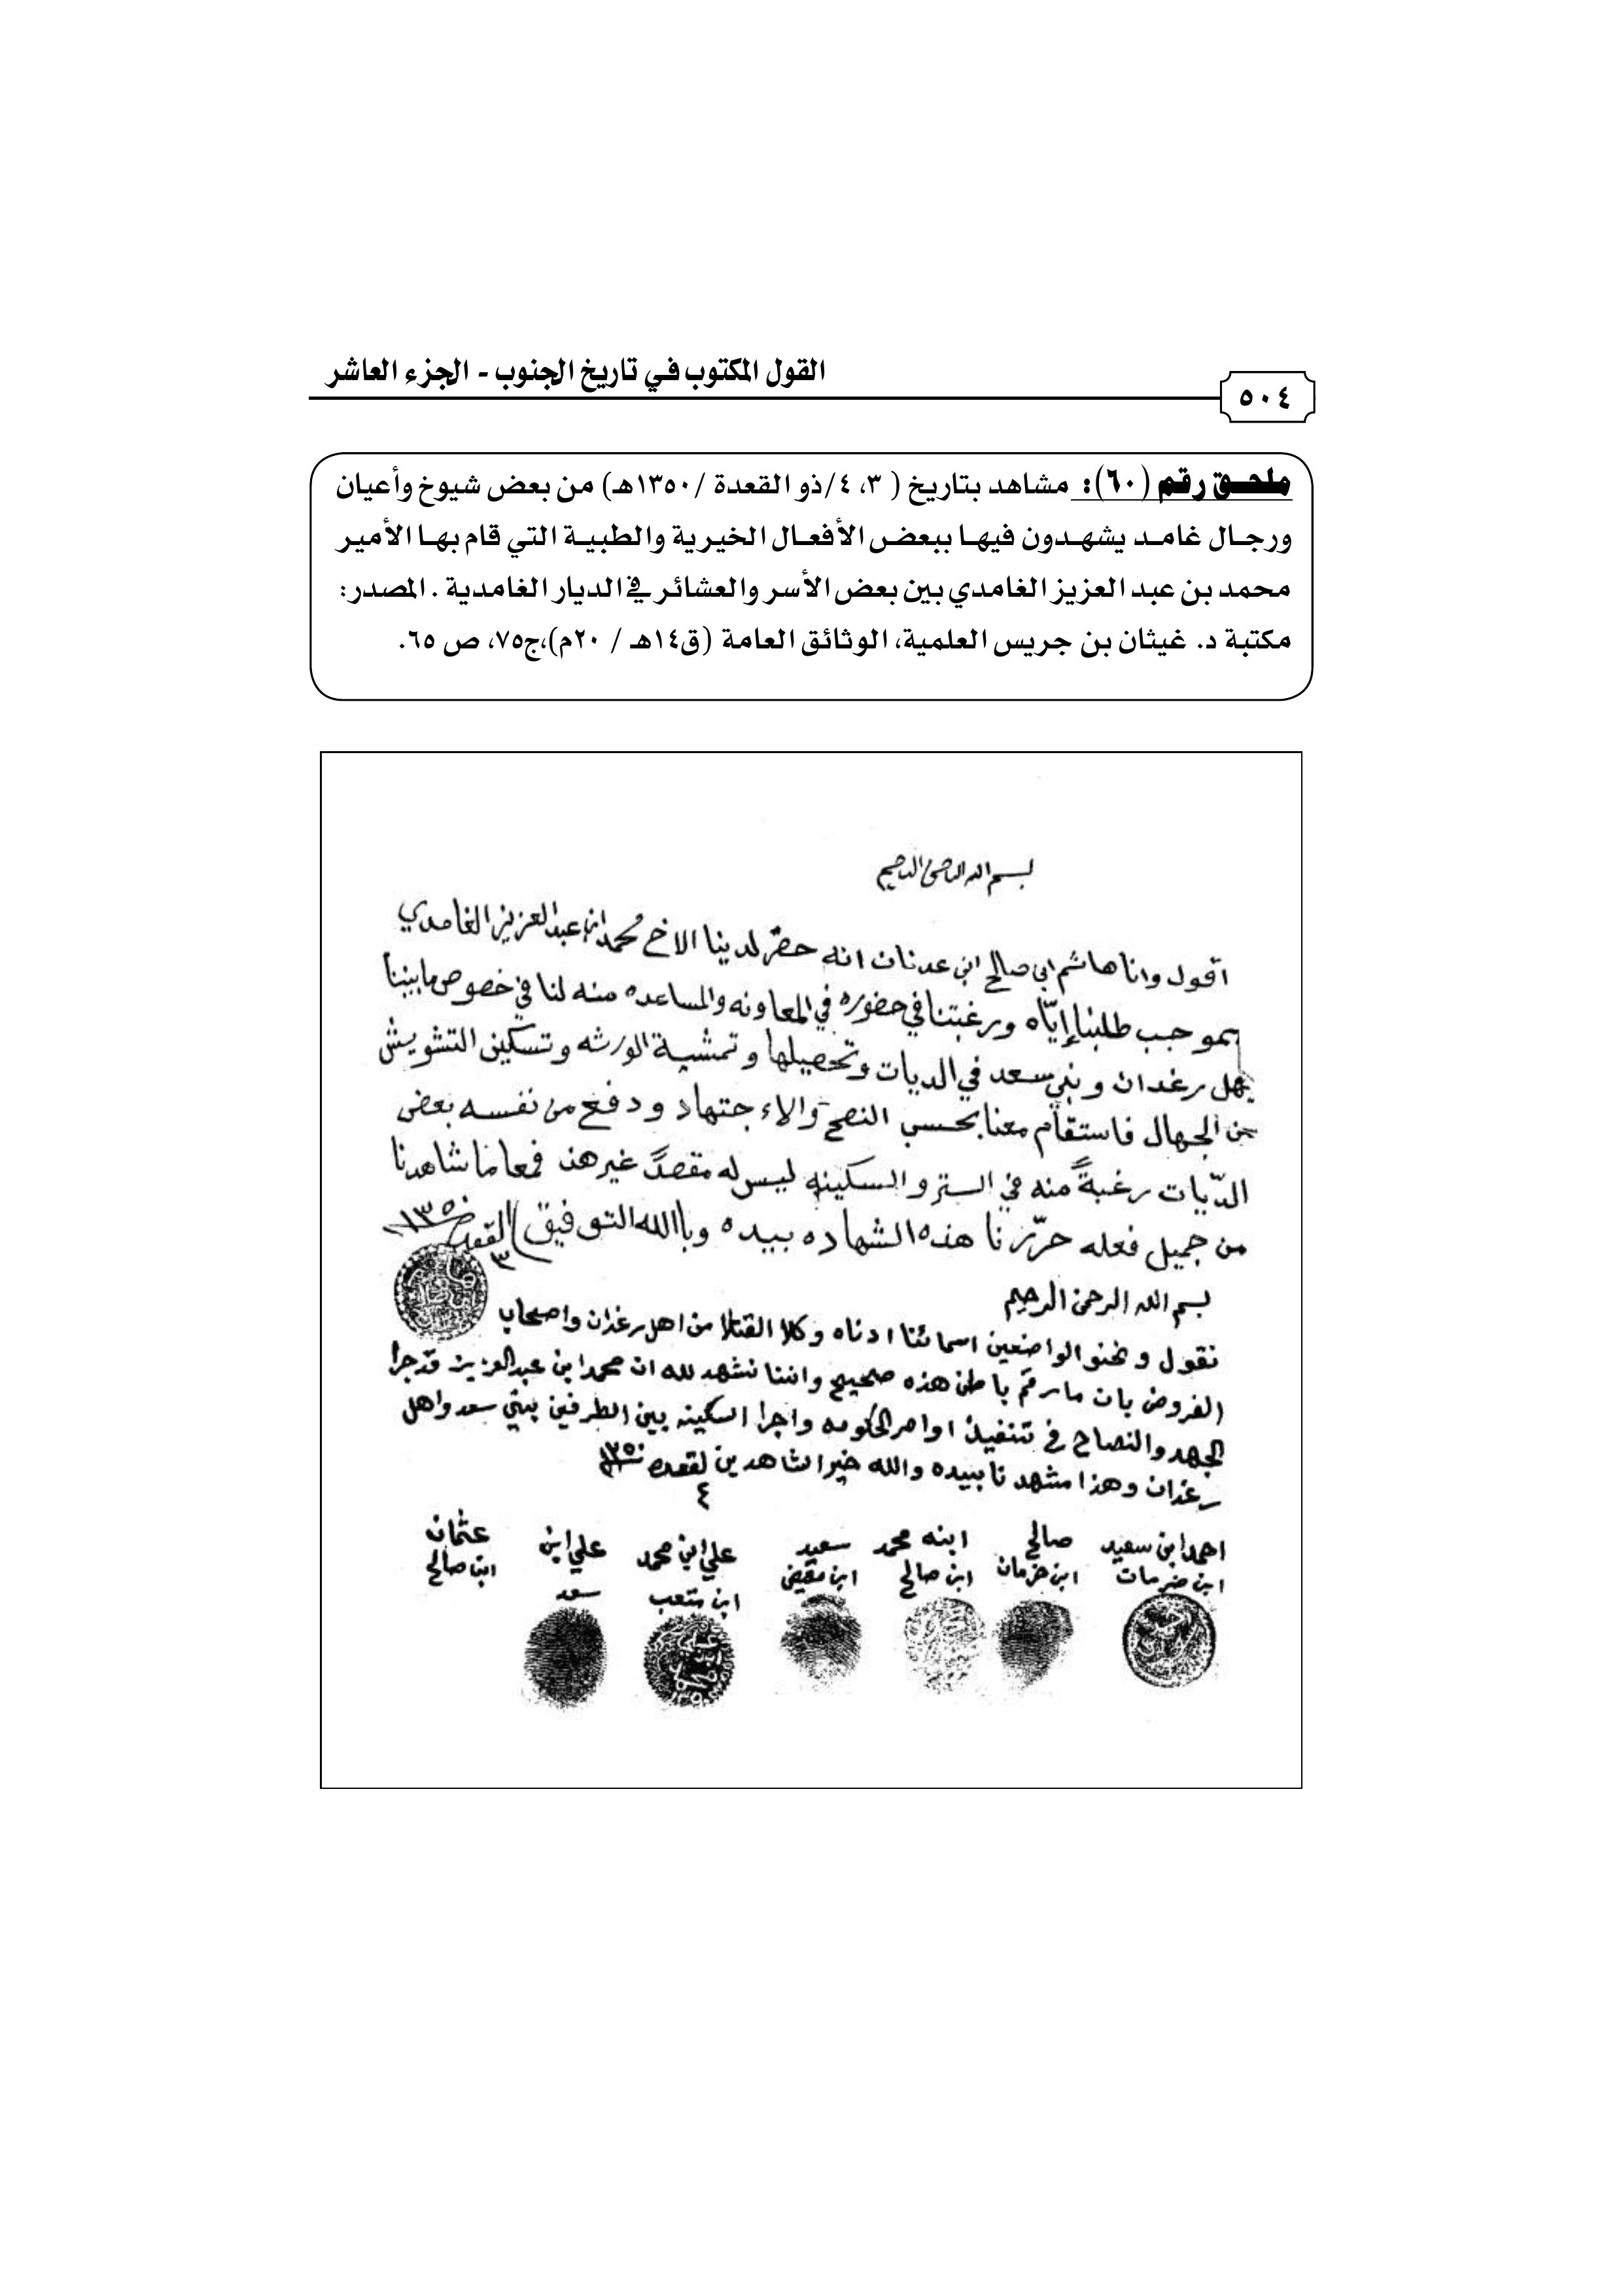 القول المكتوب في تاريخ الجنوب - الجزء العاشر
٥٠٤
ملحق رقم (٦٠): مشاهد بتاريخ ( ٣، ٤/ذو القعدة /١٣٥٠هـ) من بعض شيوخ وأعيان
ورجال غامد يشهدون فيها ببعض الأفعال الخيرية والطبية التي قام بها الأمير
محمد بن عبد العزيز الغامدي بين بعض الأسر والعشائر في الديار الغامدية . المصدر:
مكتبة د. غيثان بن جريس العلمية، الوثائق العامة (ق١٤هـ / ٢٠م)،ج٧٥، ص ٦٥.
بسم الله الرحمن الرحيم
اقول وانا هاشم ابن صالح ابن عدنان انه حضر لدينا الاخ محمد ابن عبد العزيز الغامدي
بموجب طلبنا إيّاه ورغبتنا في حضوره في المعاونه والمساعده منه لنا في خصوص ما بيننا
اهل رغدان وبني سعد في الديات وتحصيلها وتمشية الورشه وتسكين التشويش
من الجهال فاستقام معنا بحسب النصح والاء جتهاد ودفع من نفسه بعض
الديّات رغبةً منه في الستر والسكينه ليس له مقصدً غير هذ فمعا ما شاهدنا
من جميل فعله حرّرنا هذه الشهاده بيده وباالله التوفيق القعده ١٣٥٠
٣
بسم الله الرحمن الرحيم
نقول ونحنو الواضعين اسمائنا ادناه وكلا القتلا من اهل رغدان واصحاب
الفروض بان ما رقم باطن هذه صحيح واننا نشهد لله ان محمد ابن عبد العزيز قد جرا
الجهد والنصاح في تنفيذ اوامر الحكومه واجرا السكينه بين الطرفين بني سعد واهل
رغدان وهذا مشهدنا بيده والله خير الشاهدين لقعده ١٣٥٠
٤
احمد ابن سعيد صالح ابنه محمد سعيد علي ابن محمد علي ابن عثمان
ابن ابن ابن صالح ابن ابن متعب سعد ابن صالح